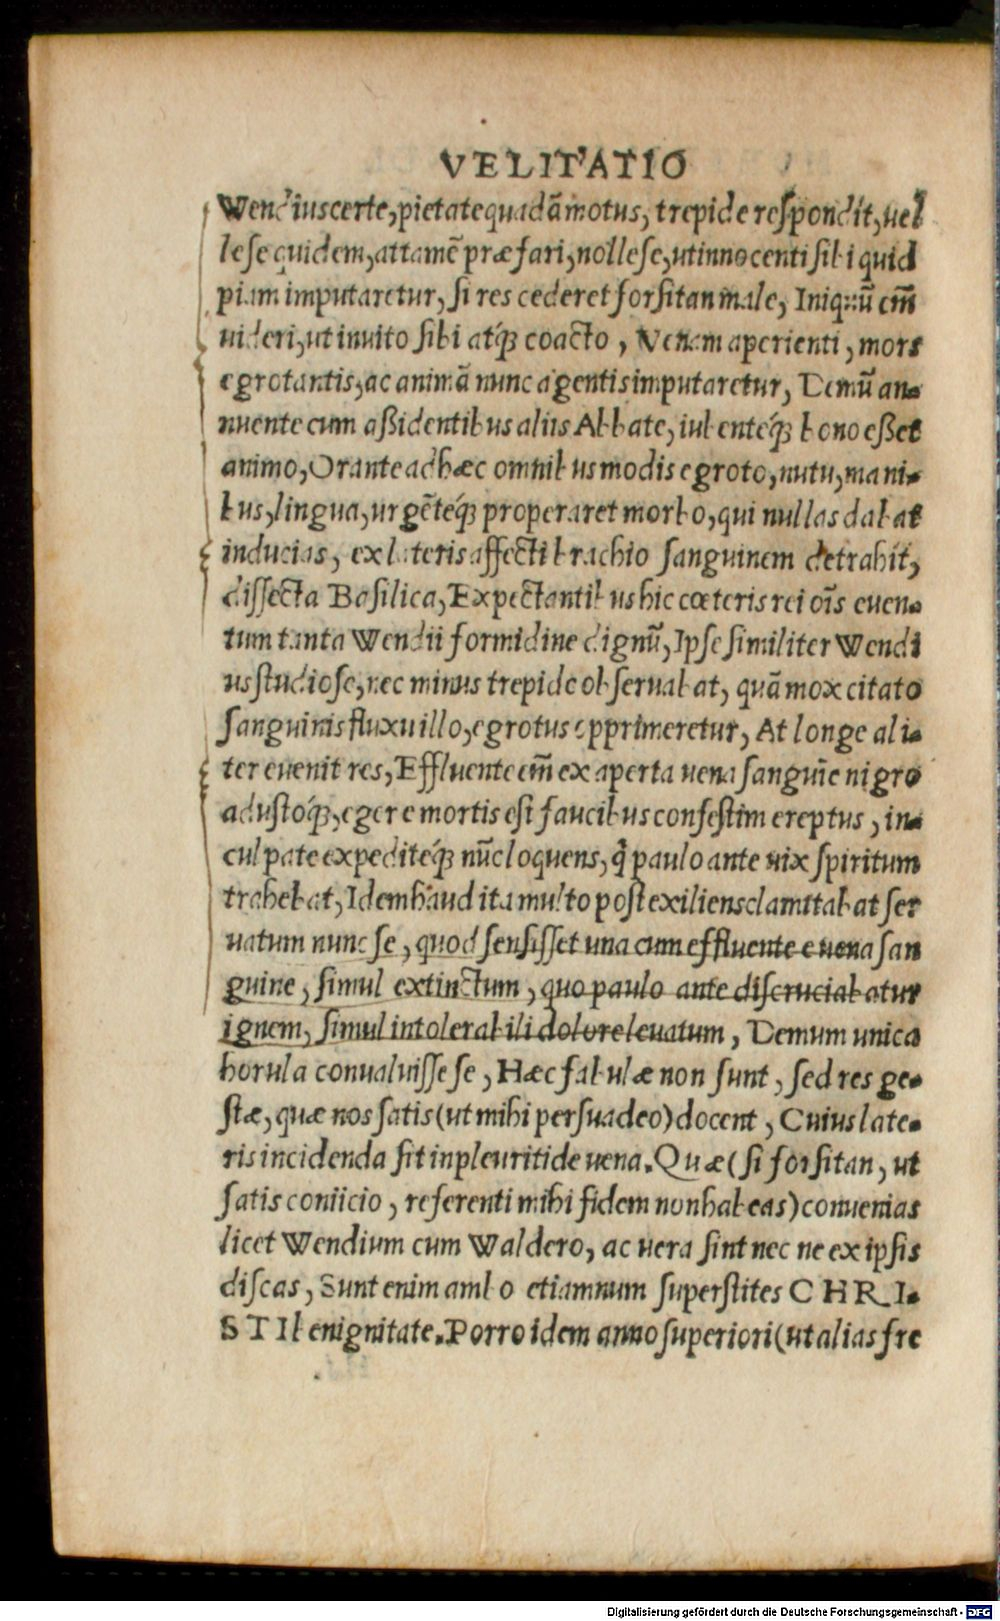 VELITATIO
Wendius certe, pietate quadā motus, trepide respondit, uel
le se quidem, attamē præfari, nolle se, ut innocenti sibi quid
piam imputaretur, si res cederet forsitan male, Iniquū em̄
uideri, ut inuito sibi atq́; coacto, Venam aperienti, mors
egrotantis, ac animā nunc agentis imputaretur, Demū an-
nuente cum aßidentibus aliis Abbate, iubenteq́; bono eßet
animo, Orante ad hæc omnibus modis egroto, nutu, mani-
bus, lingua, urgēteq́; properaret morbo, qui nullas dabat
inducias, ex lateris affecti brachio sanguinem detrahit,
dissecta Basilica, Expectantibus hic cœteris rei oīs euen-
tum tanta Wendii formidine dignū, Ipse similiter Wendi
us studiose, nec minus trepide obseruabat, quā mox citato
sanguinis fluxu illo, egrotus opprimeretur, At longe ali-
ter euenit res, Effluente em̄ ex aperta uena sanguīe nigro
adustoq́;, eger e mortis est faucibus confestim ereptus, in-
culpate expediteq́; nūc loquens, q̇ paulo ante uix spiritum
trahebat, Idem haud ita multo post exiliens clamitabat ser
uatum nunc se, quod sensisset una cum effluente e uena san
guine, simul extinctum, quo paulo ante discruciabatur
ignem, simul intolerabili dolore leuatum, Demum unica
horula conualuisse se, Hæc fabulæ non sunt, sed res ge-
stæ, quæ nos satis (ut mihi persuadeo) docent, Cuius late-
ris incidenda sit in pleuritide uena. Quæ (si forsitan, ut
satis coniicio, referenti mihi fidem non habeas) conuenias
licet Wendium cum Waldero, ac uera sint nec ne ex ipsis
discas, Sunt enim ambo etiamnum superstites CHRI-
STI benignitate. Porro idem anno superiori (ut alias fre
Digitalisierung gefördert durch die Deutsche Forschungsgemeinschaft - DFG